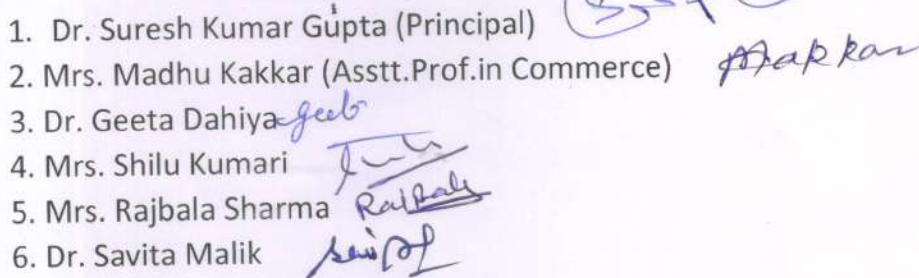 1. Dr. Suresh Kumar Gupta (Principal)
2. Mrs. Madhu Kakkar (Asstt.Prof.in Commerce)
3. Dr. Geeta Dahiya
4. Mrs. Shilu Kumari
5. Mrs. Rajbala Sharma
6. Dr. Savita Malik